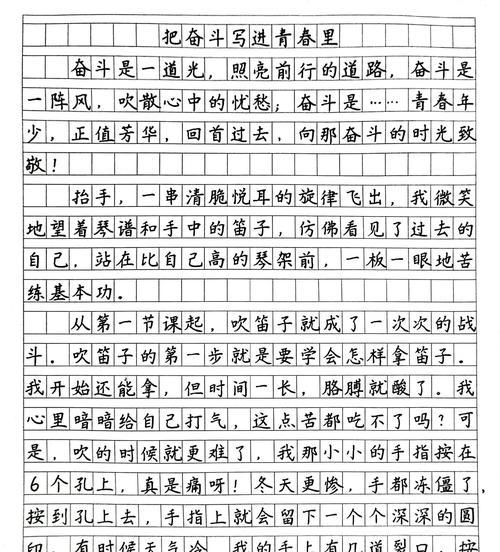 把奋斗写进青春里
奋斗是一道光，照亮前行的道路，奋斗是
一阵风，吹散心中的忧愁；奋斗是……青春年
少，正值芳华，回首过去，向那奋斗的时光致
敬！
抬手，一串清脆悦耳的旋律飞出，我微笑
地望着琴谱和手中的笛子，仿佛看见了过去的
自己，站在比自己高的琴架前，一板一眼地苦
练基本功．
从第一节课起，吹笛子就成了一次次的战
斗．吹笛子的第一步就是要学会怎样拿笛子．
我开始还能拿，但时间一长，胳膊就酸了．我
心里暗暗给自己打气，这点苦都吃不了吗？可
是，吹的时候就更难了，我那小小的手指按在
6个孔上，真是痛呀！冬天更惨，手都冻僵了，
按到孔上去，手指上就会留下一个个深深的圆
印．有时候天气冷，我的手上有几道裂口，按